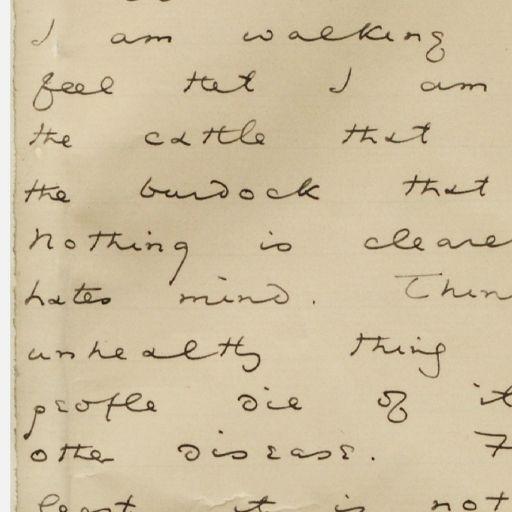 I am walking
feel that I am
the cattle that
the burdock that
Nothing is cleare
hates mind. Thin
unhealthy thing
people die of it
other disease. F
least it is not